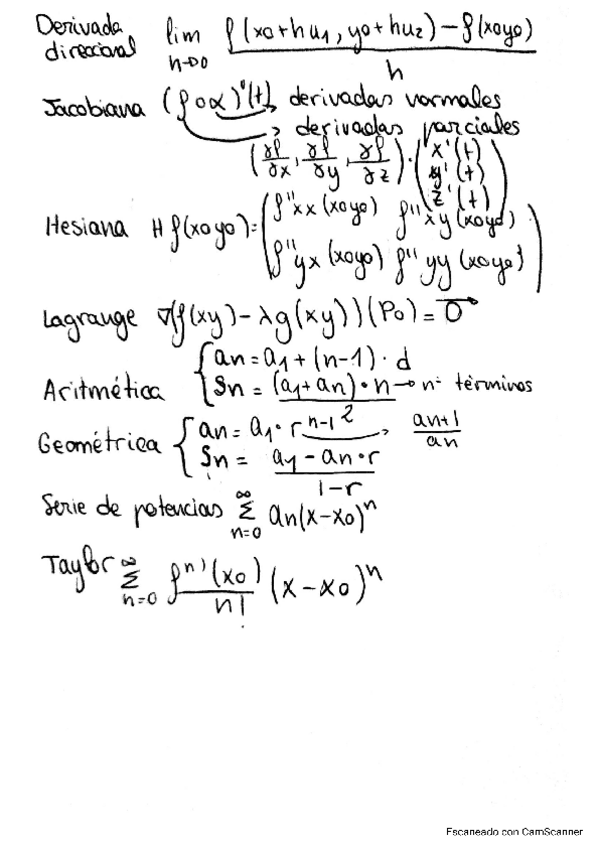 Derivada direccional lim h→0 f(x0+hu1, y0+hu2) − f(x0y0) / h
Jacobiana (f∘α)'(t) → derivadas normales
→ derivadas parciales
(∂f/∂x, ∂f/∂y, ∂f/∂z) · (x'(t) y'(t) z'(t))
Hesiana H f(x0y0) = (f''xx(x0y0) f''xy(x0y0)
f''yx(x0y0) f''yy(x0y0))
Lagrange ∇(f(xy) − λg(xy))(P0) = 0
Aritmética { an = a1 + (n-1) · d
Sn = (a1+an) · n / 2 → nº términos
Geométrica { an = a1 · r^n-1 → an+1 / an
Sn = a1 − an · r / 1 − r
Serie de potencias ∞ Σ n=0 an(x-x0)^n
Taylor ∞ Σ n=0 f^n)(x0) / n! (x − x0)^n
Escaneado con CamScanner